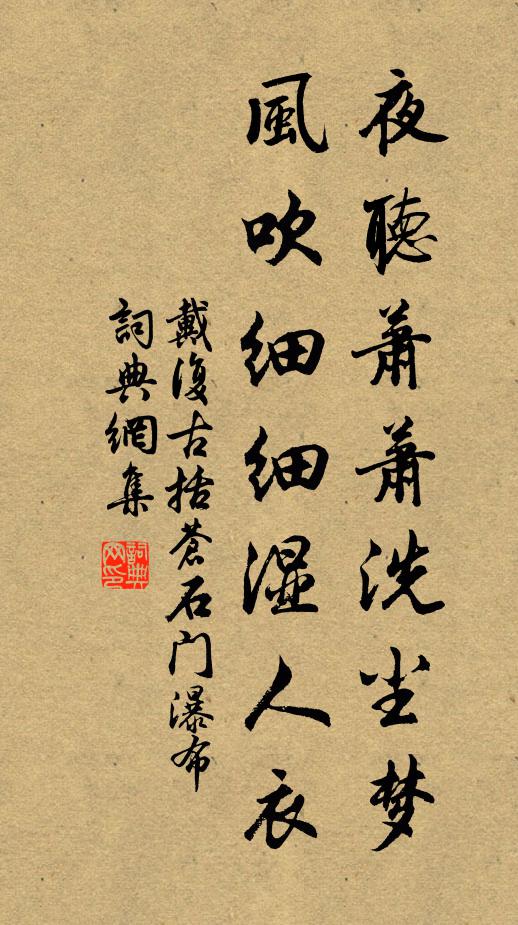 夜聽蕭蕭洗尘梦
風吹细细濕人衣
戴復古括蒼石门瀑布
詞典網集